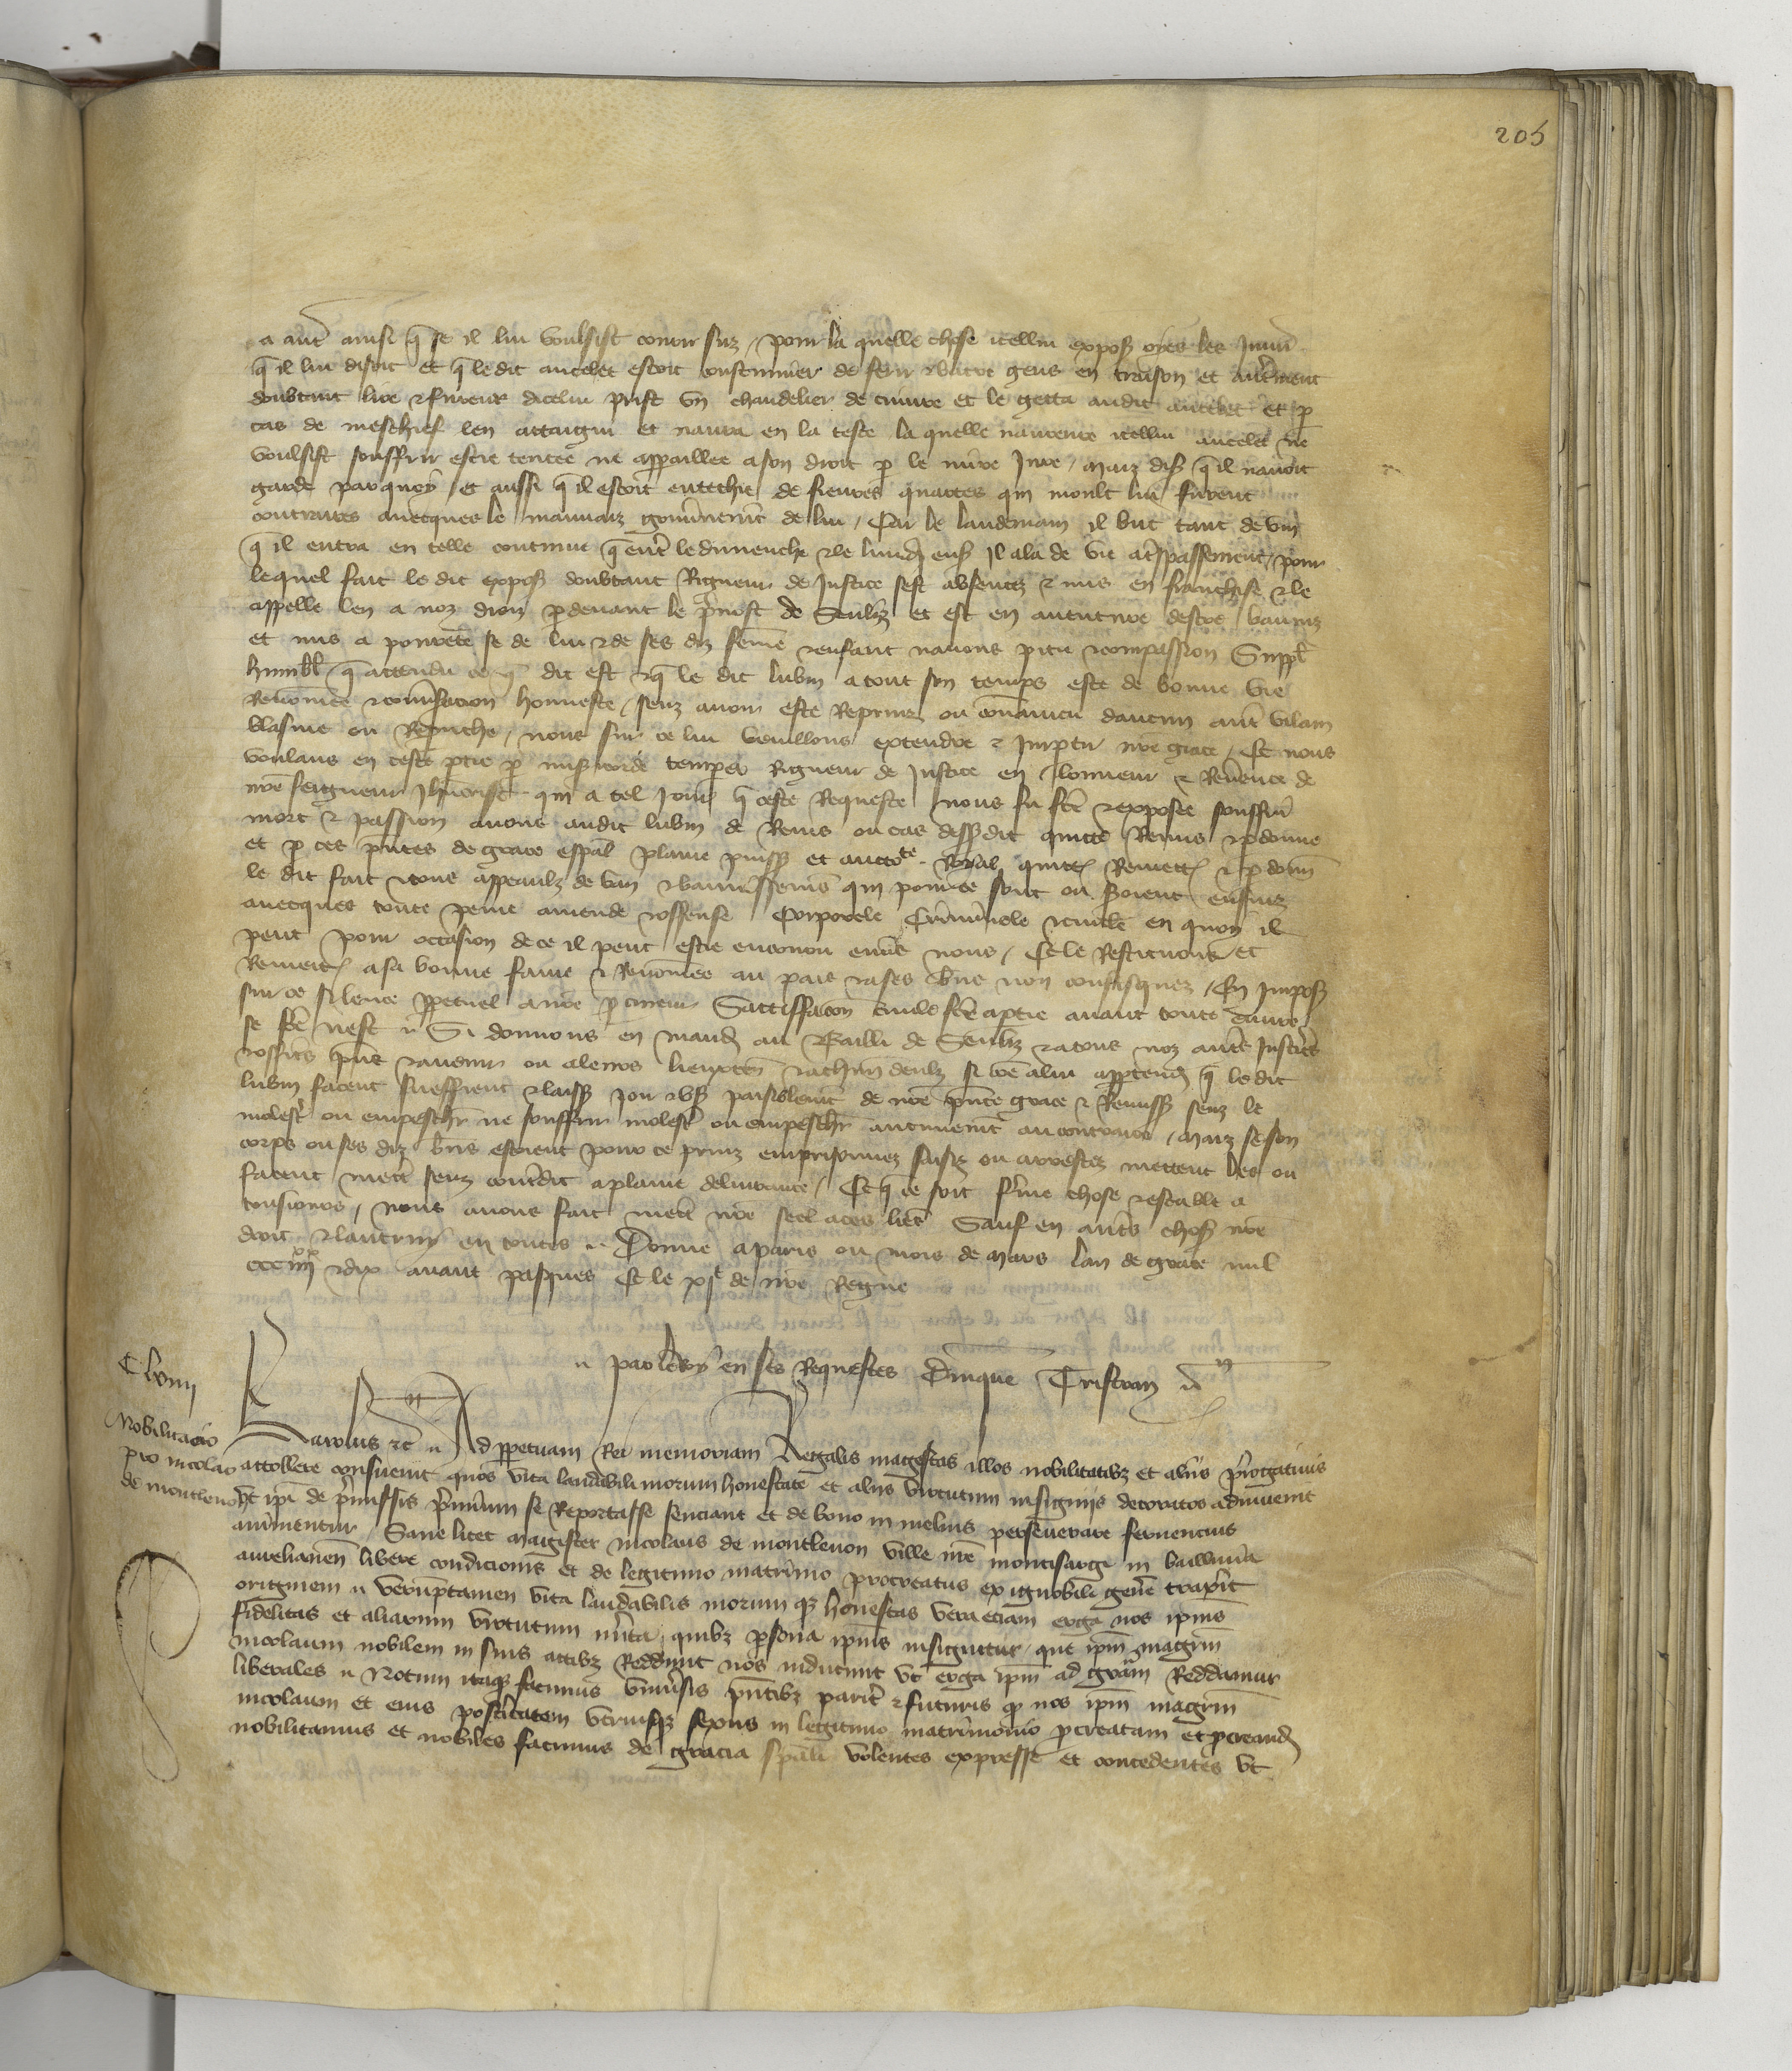 205
a aut ainsi q̃ se il lui voulsist courir suz / pour la quelle chose icellui expos oyes les Iniur
q̃ il lui disoit et q̃ ledit ancelet estoit coustumier de ferir & batre gens en traison et autrement
doubtant lire & fureur dicelui prist vn chandelier de cuivre et le getta audit ancelet et p
cas de meschief len attaigni et navra en la teste la quelle navreure icellui ancelet ne
voulsist souffrir estre tentee ne appaillee a son droit p le mire Iure / maiz dis q̃ il navoit
garde par quoy / et aussi q̃ il estoit entechie de fievres quartes qui moult lui furent
contraires avecques le mauvaiz gouvnemt de lui / Car le landemain il but tant de vin
q̃ il entra en telle continue q̃ entre le dimenche & le lundi ens Il ala de vie a trespassement / pour
lequel fait le dit expos doubtant Rigueur de Justice sest absentez & mis en franchise & le
appelle len a noz droiz p devant le prevost de Senliz et est en aventure destre banniz
et mis a povrete se de lui & de ses diz feme & enfant navons pitie & compassion Suppl
humbl q̃ attendu ce q̃ dit est & q̃ le dit lubin a tout son temps este de bonne vie
Renomee & conversacion honneste / senz avoir este Reprins ou convaincu daucun aut vilain
blasme ou Reprouche / nous sur ce lui vueillons extendre & Impartir nre grace / Et nous
voulans en ceste ptie p misericorde temperer Rigueur de Justice en lonneur & Reverence de
nre seigneur Jhucrist qui a tel Jour q̃ ceste Requeste nous fu fcte & exposee souffri
mort & passion avons audit lubin de Rems ou cas dessusdit quicte Remis & pdonne
et p ces pntes de grace espal plaine puiss et auctote Royal quict Remett & pdonn
le dit fait & tous appeaulz de ban & bannissemens qui pour ce sont ou soient ensuiz
avecques toute peine amende & offense Corporele Criminele & civile en quoy il
peut pour occasion de ce il peut estre encouru envers nous / Et le Restituons et
Remett a sa bonne fame & Renomee au pais & a ses biens non confisquez / En Impos
sur ce silence ppetuel a nre pcureur Sattiffacon civile fcte a ptie avant toute euvre
se fcte nest Si donnons en mand au Bailli de Senliz & a tous noz autres Justiciers
& officrs pns & avenir ou a leurs lieuxten & a chun deulz si come a lui apptend q̃ le dit
lubin facent sueffrent & laiss joir & us paisiblemt de nre pnte grace & Remiss senz le
molest ou empescher ne souffrir molest ou empescher aucunemt au contraire / maiz se son
corps ou ses diz biens estoient pour ce prins emprisonnez saisiz ou arrestez mettent les ou
facent mett senz contredit a plaine delivrance / Et q̃ ce soit ferme chose & estable a
tousjours / nous avons fait mett nre seel a ces lres Sauf en autres choses nre
droit & lautruy en toutes Donne a paris ou mois de Mars lan de grace mil
CCC iiii xx & dix avant pasques Et le xje de nre Regne
par le Roy en ses Requestes Cinque Tristran
C lviii
Nobilitacio
pro nicolao
de montlenon
Karolus etc Ad ppetuam Rei memoriam Regalis magestas illos nobilitatibz et aliis prerogativis
attollere consuevit quos vita laudabili morum honestate et aliis virtutum insigniis decoratos adinvenit
Vt ipi de premissis premium se Reportasse senciant et de bono in melius perseverare fervencius
animentur Sane licet Magister nicolaus de montlenon ville nre montisargi in baillivia
aurelianen libere condicionis et de legitimo matrimonio procreatus ex ignobili genere traxerit
originem veruptamen vita laudabilis morum qz honestas vera eciam erga nos ipius
fidelitas et aliarum virtutum merita quibz psona ipius insignitur que ipm magrm
nicolaum nobilem in suis actibz Reddunt nos inducunt vt erga ipm ad gram Reddamur
liberales Notum itaqz facimus vniversis pntibz parit & futuris qz nos ipm magrm
nicolaum et eius posteritatem vtriusqz sexus in legitimo matrimonio pcreatam et pcreand
nobilitamus et nobiles facimus de gracia spali volentes expresse et concedentes vt